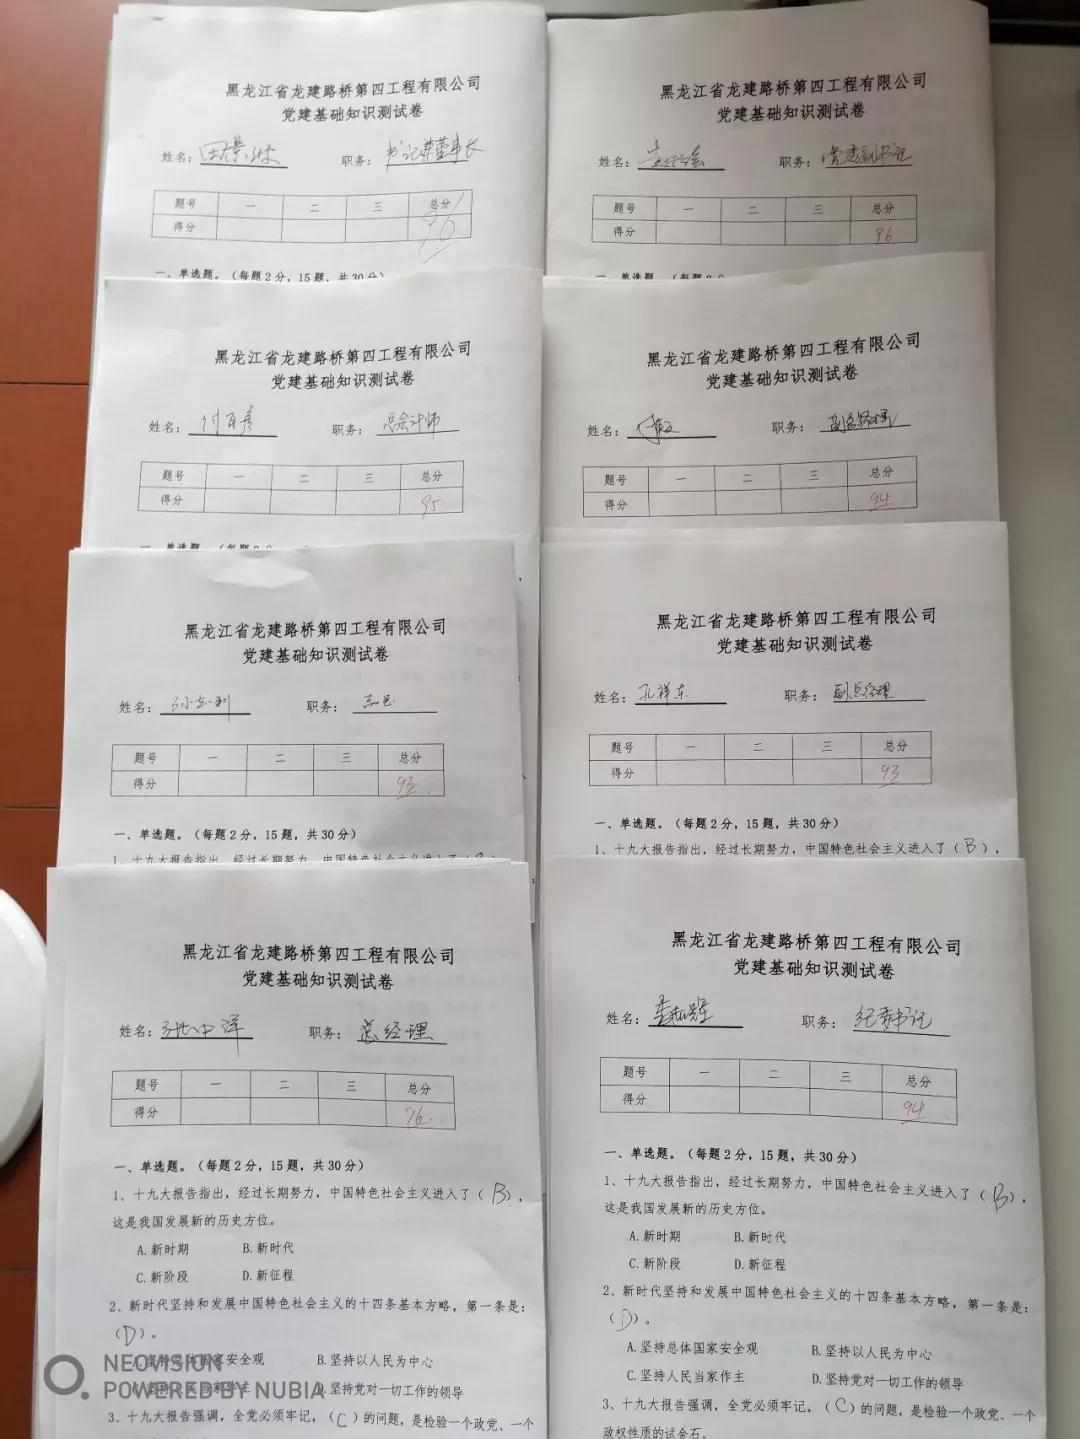 黑龙江省龙建路桥第四工程有限公司
党建基础知识测试卷
姓名： 职务：书记兼董事长
题号 一 二 三 总分
得分 96
一、单选题。（每题2分，15题，共30分）
黑龙江省龙建路桥第四工程有限公司
党建基础知识测试卷
姓名： 职务：党委副书记
题号 一 二 三 总分
得分 96
一、单选题。（每题2分
黑龙江省龙建路桥第四工程有限公司
党建基础知识测试卷
姓名： 职务：总会计师
题号 一 二 三 总分
得分 95
一、单选题。（每题2分
黑龙江省龙建路桥第四工程有限公司
党建基础知识测试卷
姓名： 职务：副总经理
题号 一 二 三 总分
得分 94
黑龙江省龙建路桥第四工程有限公司
党建基础知识测试卷
姓名：孙志利 职务：
题号 一 二 三 总分
得分 93
一、单选题。（每题2分，15题，共30分）
1、十九大报告指出，经过长期努力，中国特色社会主义进入了（B），
黑龙江省龙建路桥第四工程有限公司
党建基础知识测试卷
姓名：孔祥东 职务：副总经理
题号 一 二 三 总分
得分 93
一、单选题。（每题2分，15题，共30分）
1、十九大报告指出，经过长期努力，中国特色社会主义进入了（B），
黑龙江省龙建路桥第四工程有限公司
党建基础知识测试卷
姓名： 职务：总经理
题号 一 二 三 总分
得分 96
一、单选题。（每题2分，15题，共30分）
1、十九大报告指出，经过长期努力，中国特色社会主义进入了（B），
这是我国发展新的历史方位。
A.新时期 B.新时代
C.新阶段 D.新征程
2、新时代坚持和发展中国特色社会主义的十四条基本方略，第一条是：
（D）。
A.坚持总体国家安全观 B.坚持以人民为中心
C.坚持人民当家作主 D.坚持党对一切工作的领导
3、十九大报告强调，全党必须牢记，（C）的问题，是检验一个政党、一个
黑龙江省龙建路桥第四工程有限公司
党建基础知识测试卷
姓名： 职务：纪委书记
题号 一 二 三 总分
得分 94
一、单选题。（每题2分，15题，共30分）
1、十九大报告指出，经过长期努力，中国特色社会主义进入了（B），
这是我国发展新的历史方位。
A.新时期 B.新时代
C.新阶段 D.新征程
2、新时代坚持和发展中国特色社会主义的十四条基本方略，第一条是：
（D）。
A.坚持总体国家安全观 B.坚持以人民为中心
C.坚持人民当家作主 D.坚持党对一切工作的领导
3、十九大报告强调，全党必须牢记，（C）的问题，是检验一个政党、一个
政权性质的试金石。
NEOVISION
POWERED BY NUBIA